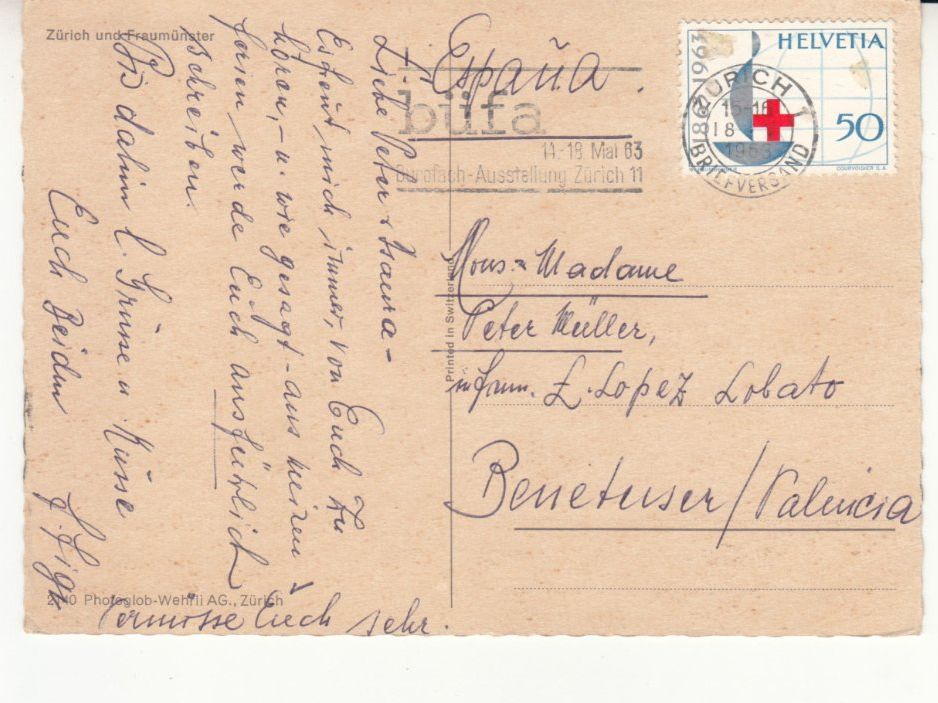 Zürich und Fraumünster
España.
büfa
14.-18. Mai 63
Bürofach-Ausstellung Zürich 11
HELVETIA
1863 1963
50
COURVOISIER S.A.
ZÜRICH 1
15-16
18
1963
BRIEFVERSAND
Liebe Peter + Isaura -
Es freut mich immer, von Euch zu
hören, - u. wie gesagt - aus meinen
Ferien werde Euch ausführlich
schreiben.
Bis dahin l. Grüsse u. Küsse
Euch Beiden
Vermisse Euch sehr.
Mons. Madame
Peter Müller,
L. Lopez Lobato
Benetuser / Valencia
Printed in Switzerland
Photoglob-Wehrli AG., Zürich